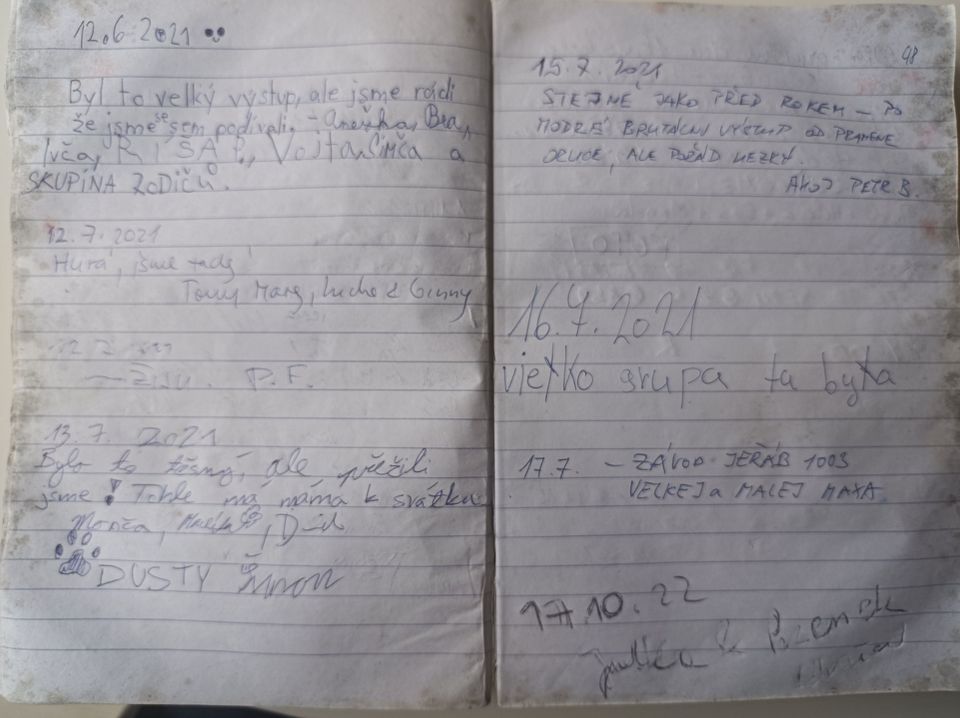 12.6.2021
Byl to velký výstup, ale jsme rádi
že jsme se sem podívali. - Anežka, Bea,
Ivča, RÍŠA P., Vojta, Simča a
SKUPINA RODIČŮ.
12.7.2021
Hurá, jsme tady
Tomy Marg, Lucho & Ginny
P.F.
13.7. 2021
Bylo to těsný, ale přežili
jsme! Tohle má máma k svátku
Monča,
DUSTY
98
15.7.2021
STEJNĚ JAKO PŘED ROKEM — PO
MODRÉ BRUTÁLNÍ VÝSTUP OD PRAMENE
ORLICE, ALE POŘÁD HEZKÝ.
AHOJ PETR B.
16.7.2021
vietko grupa tu była
17.7. - ZÁVOD JEŘÁB 1003
VELKEJ a MALEJ MAXA
17.10.22